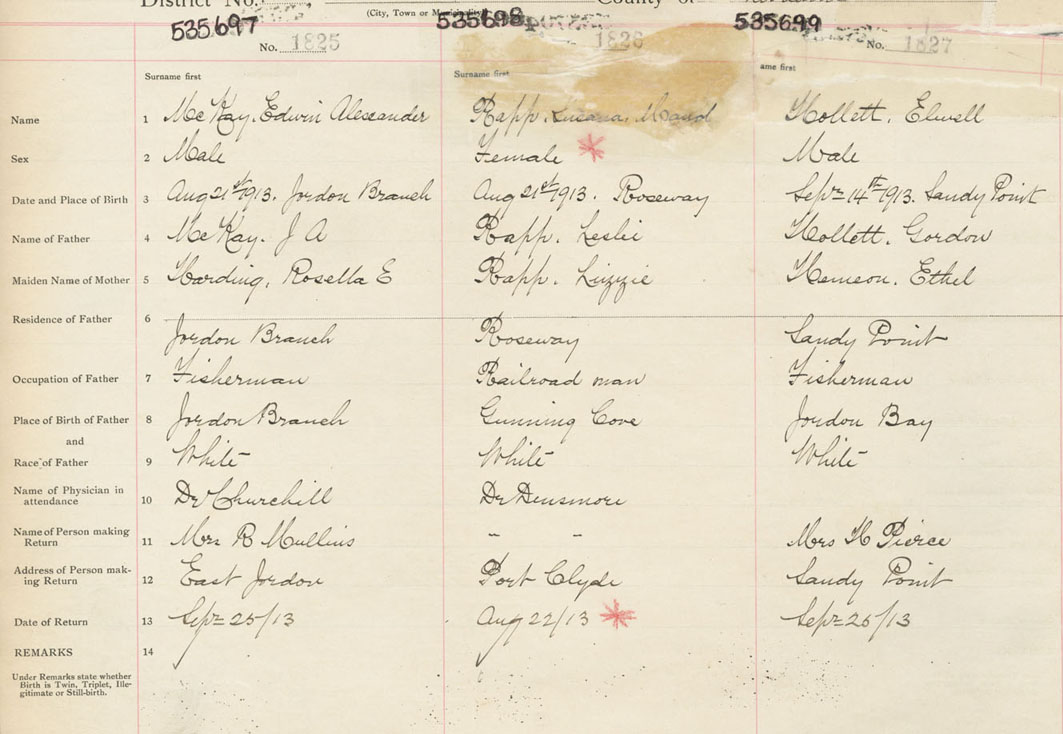 District No.
(City, Town or Municipality)
County of
535697 535698 535699
No. 1825 1826 No. 1827
Surname first Surname first ame first
Name 1 McKay, Edwin Alexander Rapp, Maud Hollett, Elwell
Sex 2 Male Female Male
Date and Place of Birth 3 Aug 21st 1913. Jordon Branch Aug 21st 1913. Roseway Sept 14th 1913. Sandy Point
Name of Father 4 McKay. J A Rapp. Leslie Hollett. Gordon
Maiden Name of Mother 5 Harding, Rosella E Rapp. Lizzie Hemeon. Ethel
Residence of Father 6 Jordon Branch Roseway Sandy Point
Occupation of Father 7 Fisherman Railroad man Fisherman
Place of Birth of Father 8 Jordon Branch Gunning Cove Jordon Bay
and
Race of Father 9 White White White
Name of Physician in
attendance 10 Dr Churchill Dr Densmore
Name of Person making
Return 11 Mrs R Mullins " " Mrs H Pierce
Address of Person mak-
ing Return 12 East Jordon Port Clyde Sandy Point
Date of Return 13 Sept 25/13 Aug 22/13 Sept 26/13
REMARKS 14
Under Remarks state whether
Birth is Twin, Triplet, Ille-
gitimate or Still-birth.